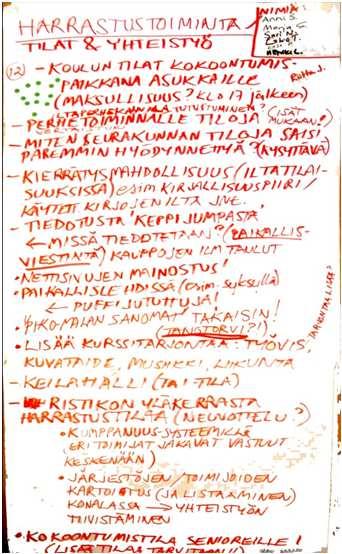 HARRASTUSTOIMINTA
TILAT & YHTEISTYÖ
NIMIÄ:
Anni S.
Ritta S.
12 - KOULUN TILAT KOKOONTUMIS-
PAIKKANA ASUKKAILLE
(MAKSULLISUUS? KLO 17 jälkeen)
ILTAPERHEKAHVILA TUTUSTUMINEN?
- PERHETOIMINNALLE TILOJA (ISÄT MUKAAN!)
- MITEN SEURAKUNNAN TILOJA SAISI
PAREMMIN HYÖDYNNETTYÄ? (KYSYTTÄVÄ)
- KIERRÄTYSMAHDOLLISUUS (ILTATILAI-
SUUKSISSA) esim KIRJALLISUUSPIIRI /
KÄYTETT. KIRJOJEN ILTA JNE.
- TIEDOTUSTA KEPPIJUMPASTA
← MISSÄ TIEDOTETAAN? (PAIKALLIS-
VIESTINTÄ) KAUPPOJEN ILM TAULUT
• NETTISIVUJEN MAINOSTUS!
• PAIKALLISLEHDISSÄ (esim. syksyllä)
← PUFFIJUTUTUJA!
PIKO-MALAN SANOMAT TAKAISIN!
(TANOTORVI?!)
• LISÄÄ KURSSITARJONTAA: TYÖVÄS,
KUVATAIDE, MUSIIKKI, LIIKUNTA
- KEILAHALLI (TAI TILA)
- RISTIKON YLÄKERRASTA
HARRASTUSTILAA (NEUVOTTELU?)
• KUMPPANUUS-SYSTEEMILLÄ
(ERI TOIMIJAT JAKAVAT VASTUUT
KESKENÄÄN)
• JÄRJESTÖJEN/TOIMIJOIDEN
KARTOITUS (JA LISTAAMINEN)
KONALASSA → YHTEISTYÖN
TIIVISTÄMINEN
• KOKOONTUMISTILA SENIOREILLE!
(LISÄÄ TILAA TARVITAAN!!)